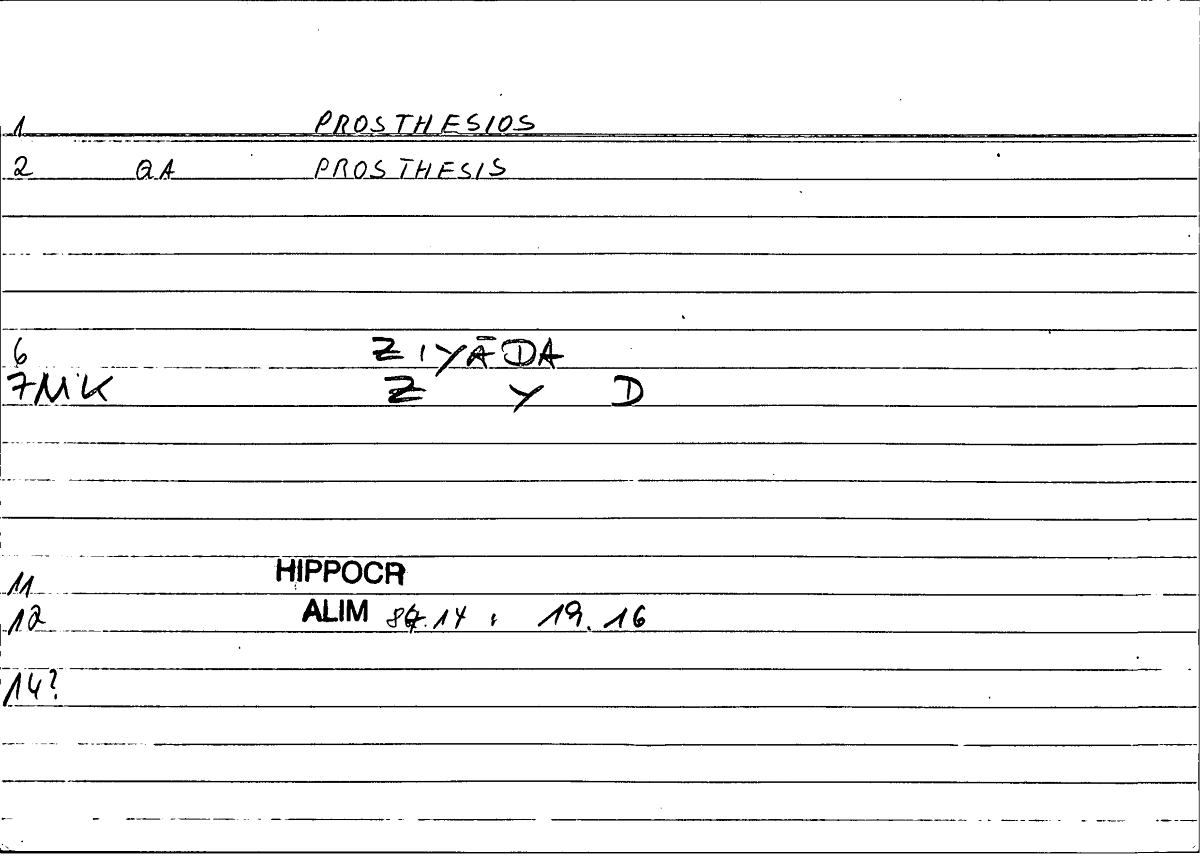 1 PROSTHESIOS
2 QA PROSTHESIS
6 ZIYĀDA
7MK Z Y D
11 HIPPOCR
12 ALIM 14 : 19.16
14?